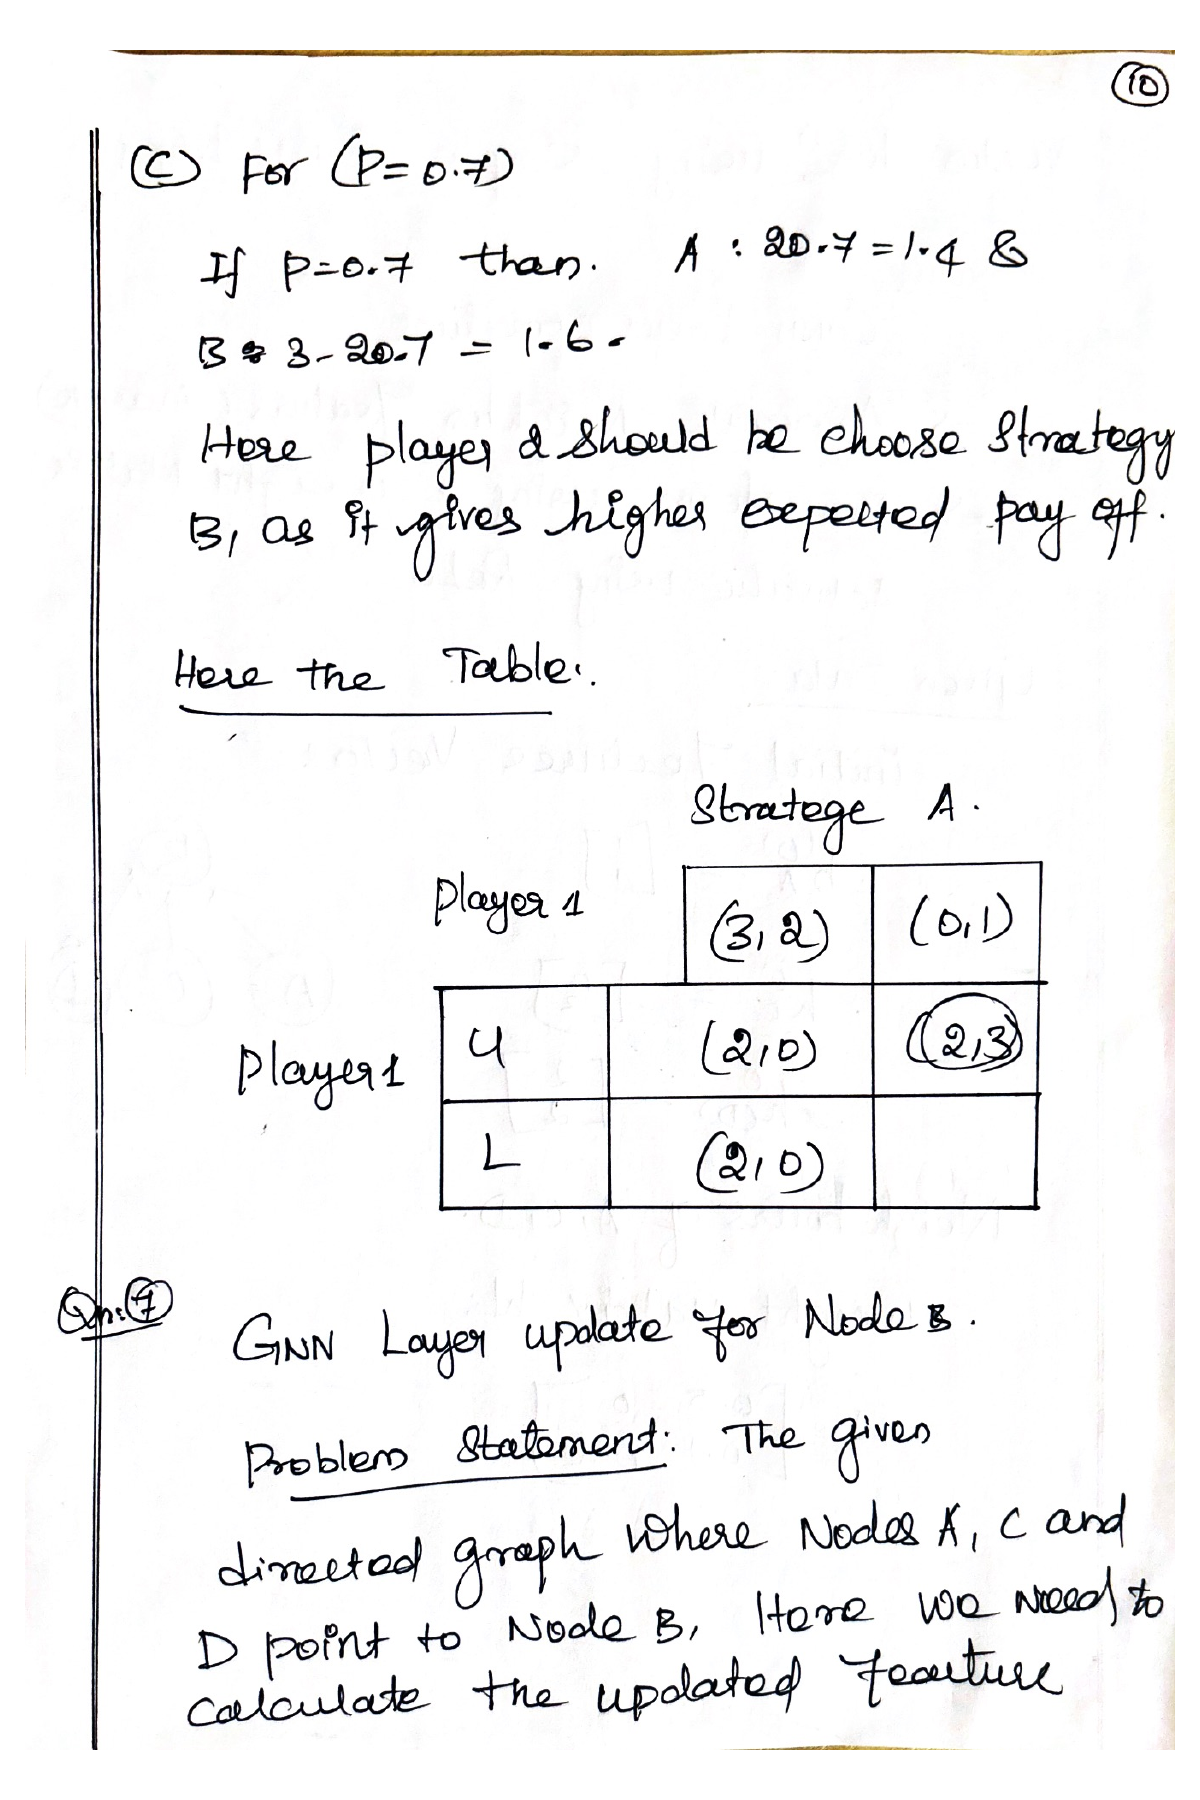 10
(C) For (P=0.7)
If P=0.7 than. A : 20.7 = 1.4 &
B 3-20.7 = 1.6.
Here player 2 should be choose strategy
B, as it gives higher expected pay off.
Here the Table:.
Stratege A.
player 1 (3,2) (0,1)
U (2,0) (2,3)
player 1
L (2,0)
Qn:7
GNN Layer update for Node B.
Problem Statement: The given
directed graph where Nodes A, C and
D point to Node B, Here we need to
calculate the updated feature